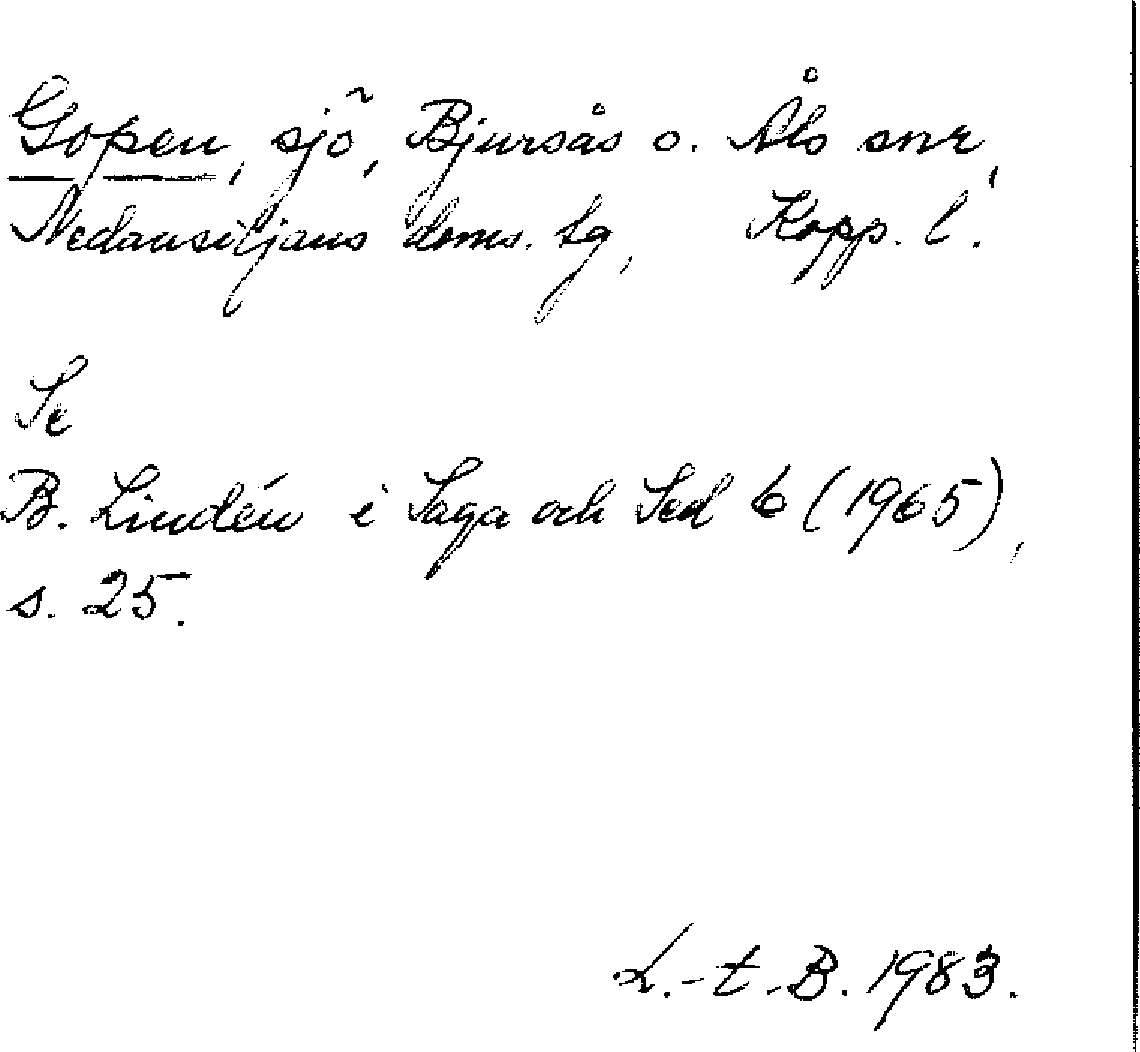 Gopen, sjö, Bjursås o. Åls snr,
Nedansiljans doms. tg, Kopp. l.
Se
B. Lindén i Saga och Sed 6 (1965),
s. 25.
L.-t. B. 1983.